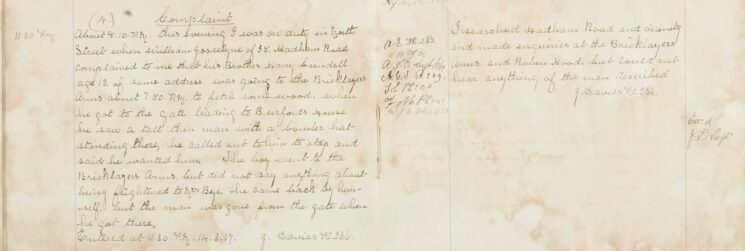 11.30 P.M.
(4.) Complaint.
About 8.10 P.M. this evening I was on duty in North
Street when William Joscelyne of 35. Hadham Road
complained to me that his Brother Harry Cundell
age 12 of same address was going to the Bricklayers
Arms about 7.30 P.M. to fetch some wood. when
he got to the gate leading to Burfords House
he saw a tall thin man with a bowler hat
standing there, he called out to him to stop and
said he wanted him. The boy went to the
Bricklayers Arms, but did not say anything about
being frightened to Mrs Bye. he came back by him-
self but the man was gone from the gate when
he got there.
Entered at 11.30. P.M. 14.3.17. J. Davies Pc 236.
I searched Hadham Road and vicinity
and made enquiries at the Bricklayers
Arms, and Robin Hood, but could not
hear anything of the man described.
J. Davies Pc 236.